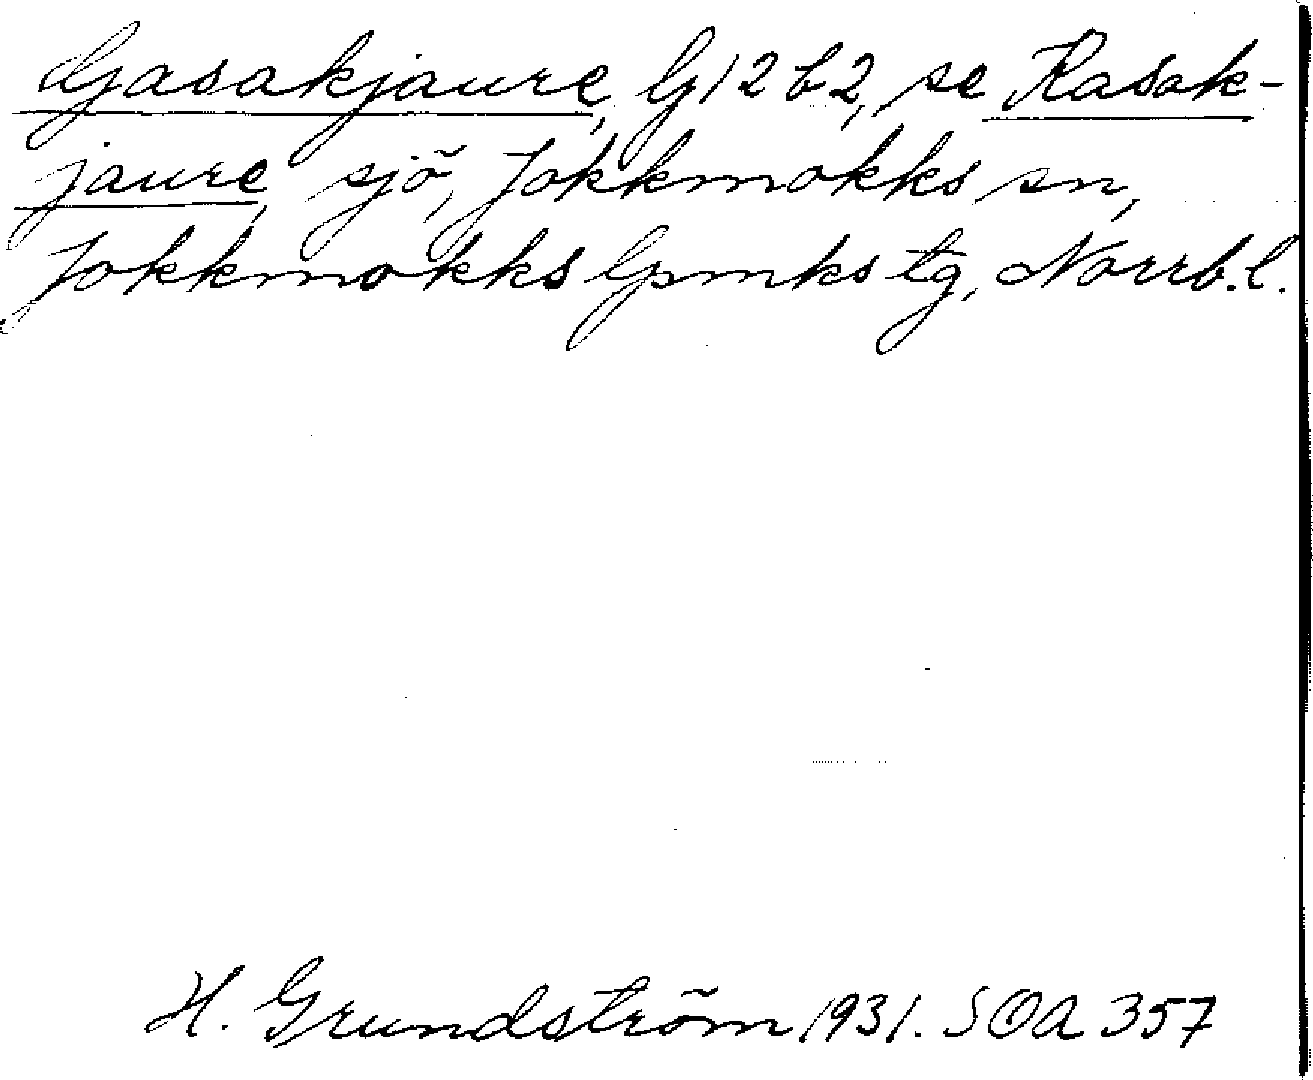 Gasakjaure, G12b2, se Kasak-
jaure, sjö, Jokkmokks sn,
Jokkmokks lpmks tg, Norrb.l.
H. Grundström 1931. SOA 357